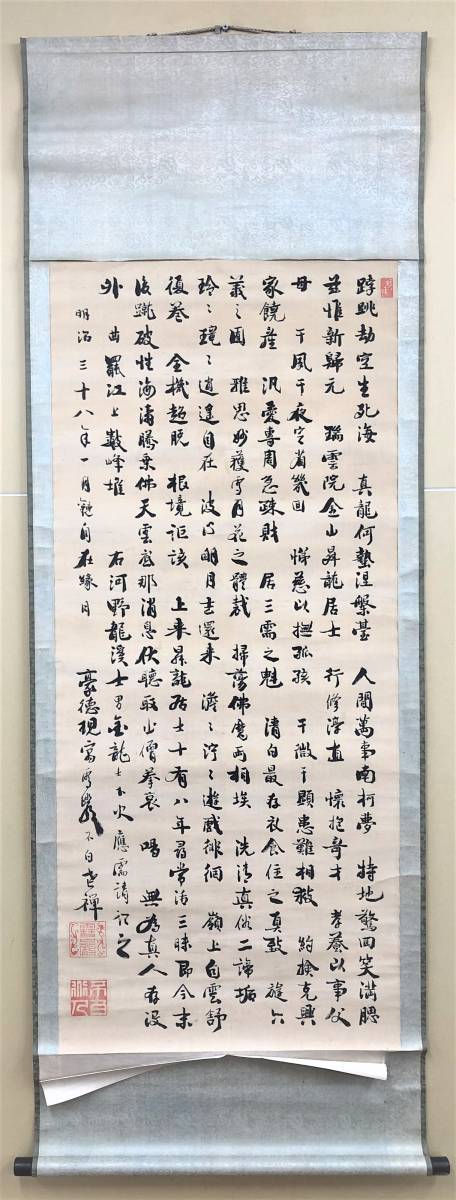 踍跳劫空生死海 真龍何墊涅槃臺 人間萬事南柯夢 特地驚回笑滿腮
茲惟新歸元 瑞雲院金山昇龍居士 行修淳直 懷抱奇才 孝養以事父
母 干風干夜定省幾回 悌慈以撫孤孩 干微干顯患難相救 約儉克興
家饒產 汎愛專周急疎財 居三需之魁 清白最存衣食住之真致 旋六
義之園 雅思妙獲雪月花之體裁 掃蕩佛魔両相埃 洗清真俗二諦垢
玲々瓏々逍遙自在 波心明月去還来 濟々滂々遊戲徘徊 嶺上白雲舒
復卷 全機超脫 根境詎該 上来昇龍居士十有八年尋常活三昧即今末
後蹴破性海濤騰乗佛天雲底那消息伏聽取山僧拳衷 喝 無為真人存没
外 曲罷江上數峰堆 右河野龍溪士男金龍士下火應需請記之
明治三十八年一月觀自在緣日 豪德現寓 不白老禪